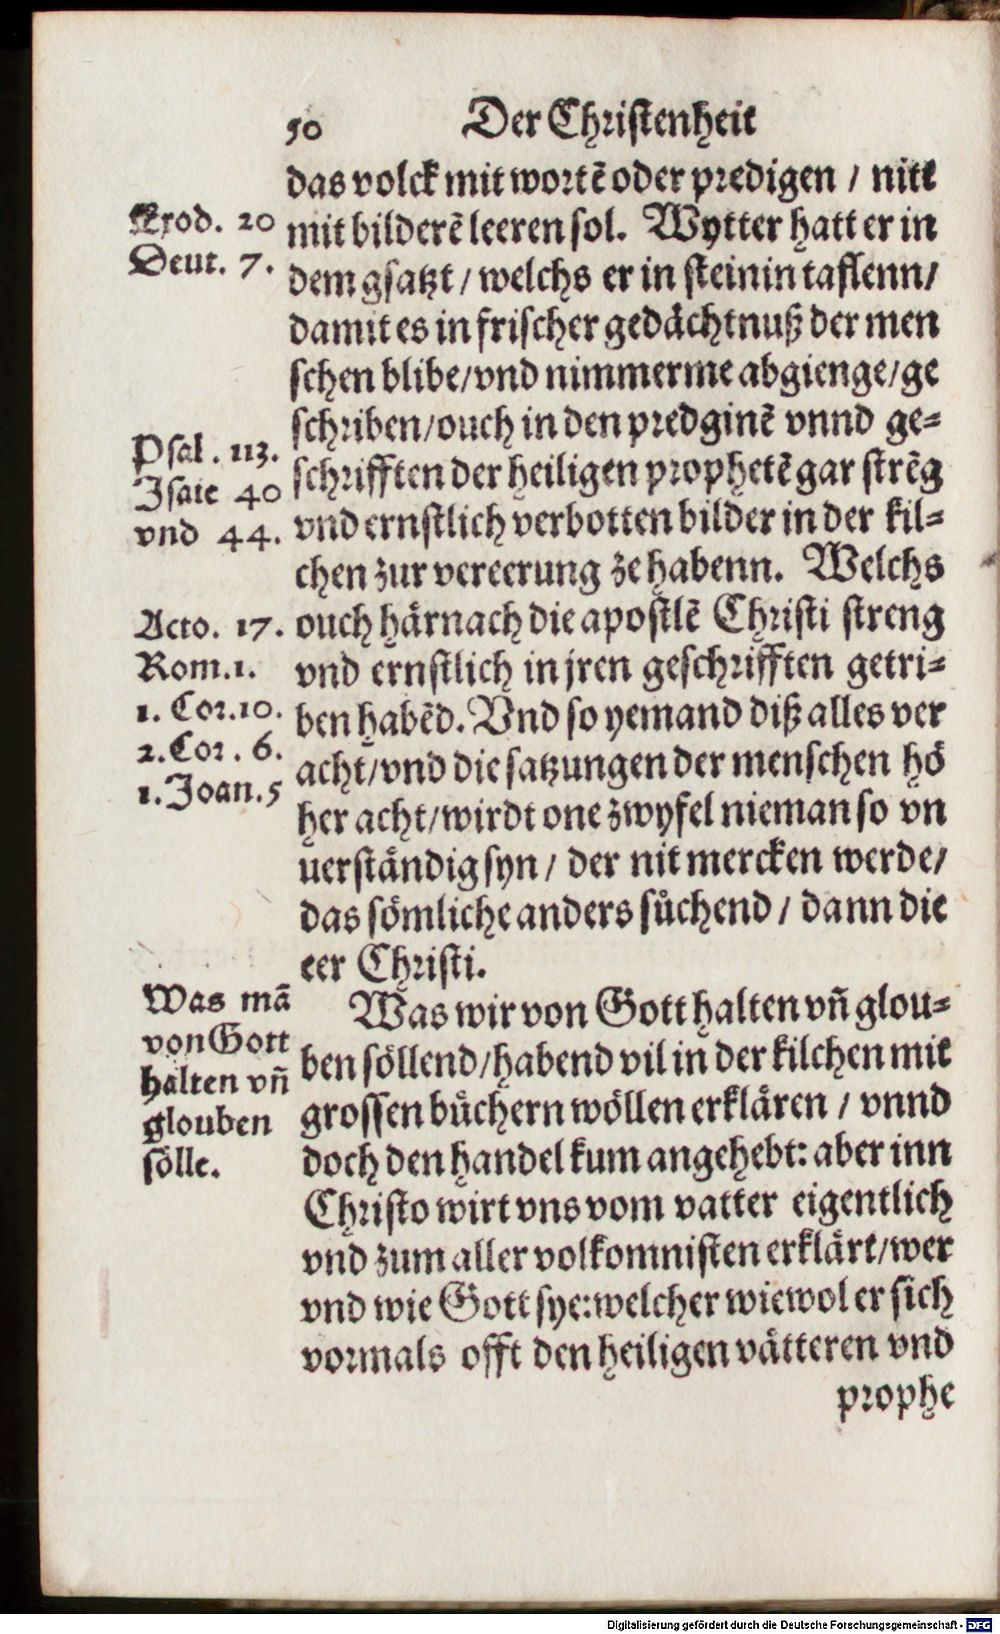 50 Der Christenheit
das volck mit wortē oder predigen / nitt
mit bilderē leeren sol. Wytter hatt er in
dem gsatzt / welchs er in steinin taflenn/
damit es in frischer gedächtnuß der men
schen blibe/vnd nimmerme abgienge/ge
schriben/ouch in den predginē vnnd ge=
schrifften der heiligen prophetē gar strēg
vnd ernstlich verbotten bilder in der kil=
chen zur vereerung ze habenn. Welchs
ouch härnach die apostlē Christi streng
vnd ernstlich in jren geschrifften getri=
ben habēd. Vnd so yemand diß alles ver
acht/vnd die satzungen der menschen hö
her acht/wirdt one zwyfel nieman so vn
uerständig syn / der nit mercken werde/
das sömliche anders sůchend / dann die
eer Christi.
Was wir von Gott halten vñ glou=
ben söllend/habend vil in der kilchen mit
grossen bůchern wöllen erklären / vnnd
doch den handel kum angehebt: aber inn
Christo wirt vns vom vatter eigentlich
vnd zum aller volkomnisten erklärt/wer
vnd wie Gott sye: welcher wiewol er sich
vormals offt den heiligen vätteren vnd
prophe
Exod. 20
Deut. 7.
Psal. 113.
Isaie 40
vnd 44.
Acto. 17.
Rom. 1.
1. Cor. 10.
2. Cor. 6.
1. Joan. 5
Was mā
von Gott
halten vñ
glouben
sölle.
Digitalisierung gefördert durch die Deutsche Forschungsgemeinschaft - DFG